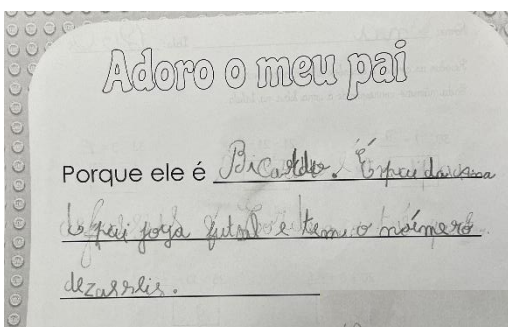 Adoro o meu pai
Porque ele é Bicardo. É o pai da
O pai joga futsal e tem o noímero
dezasseis.